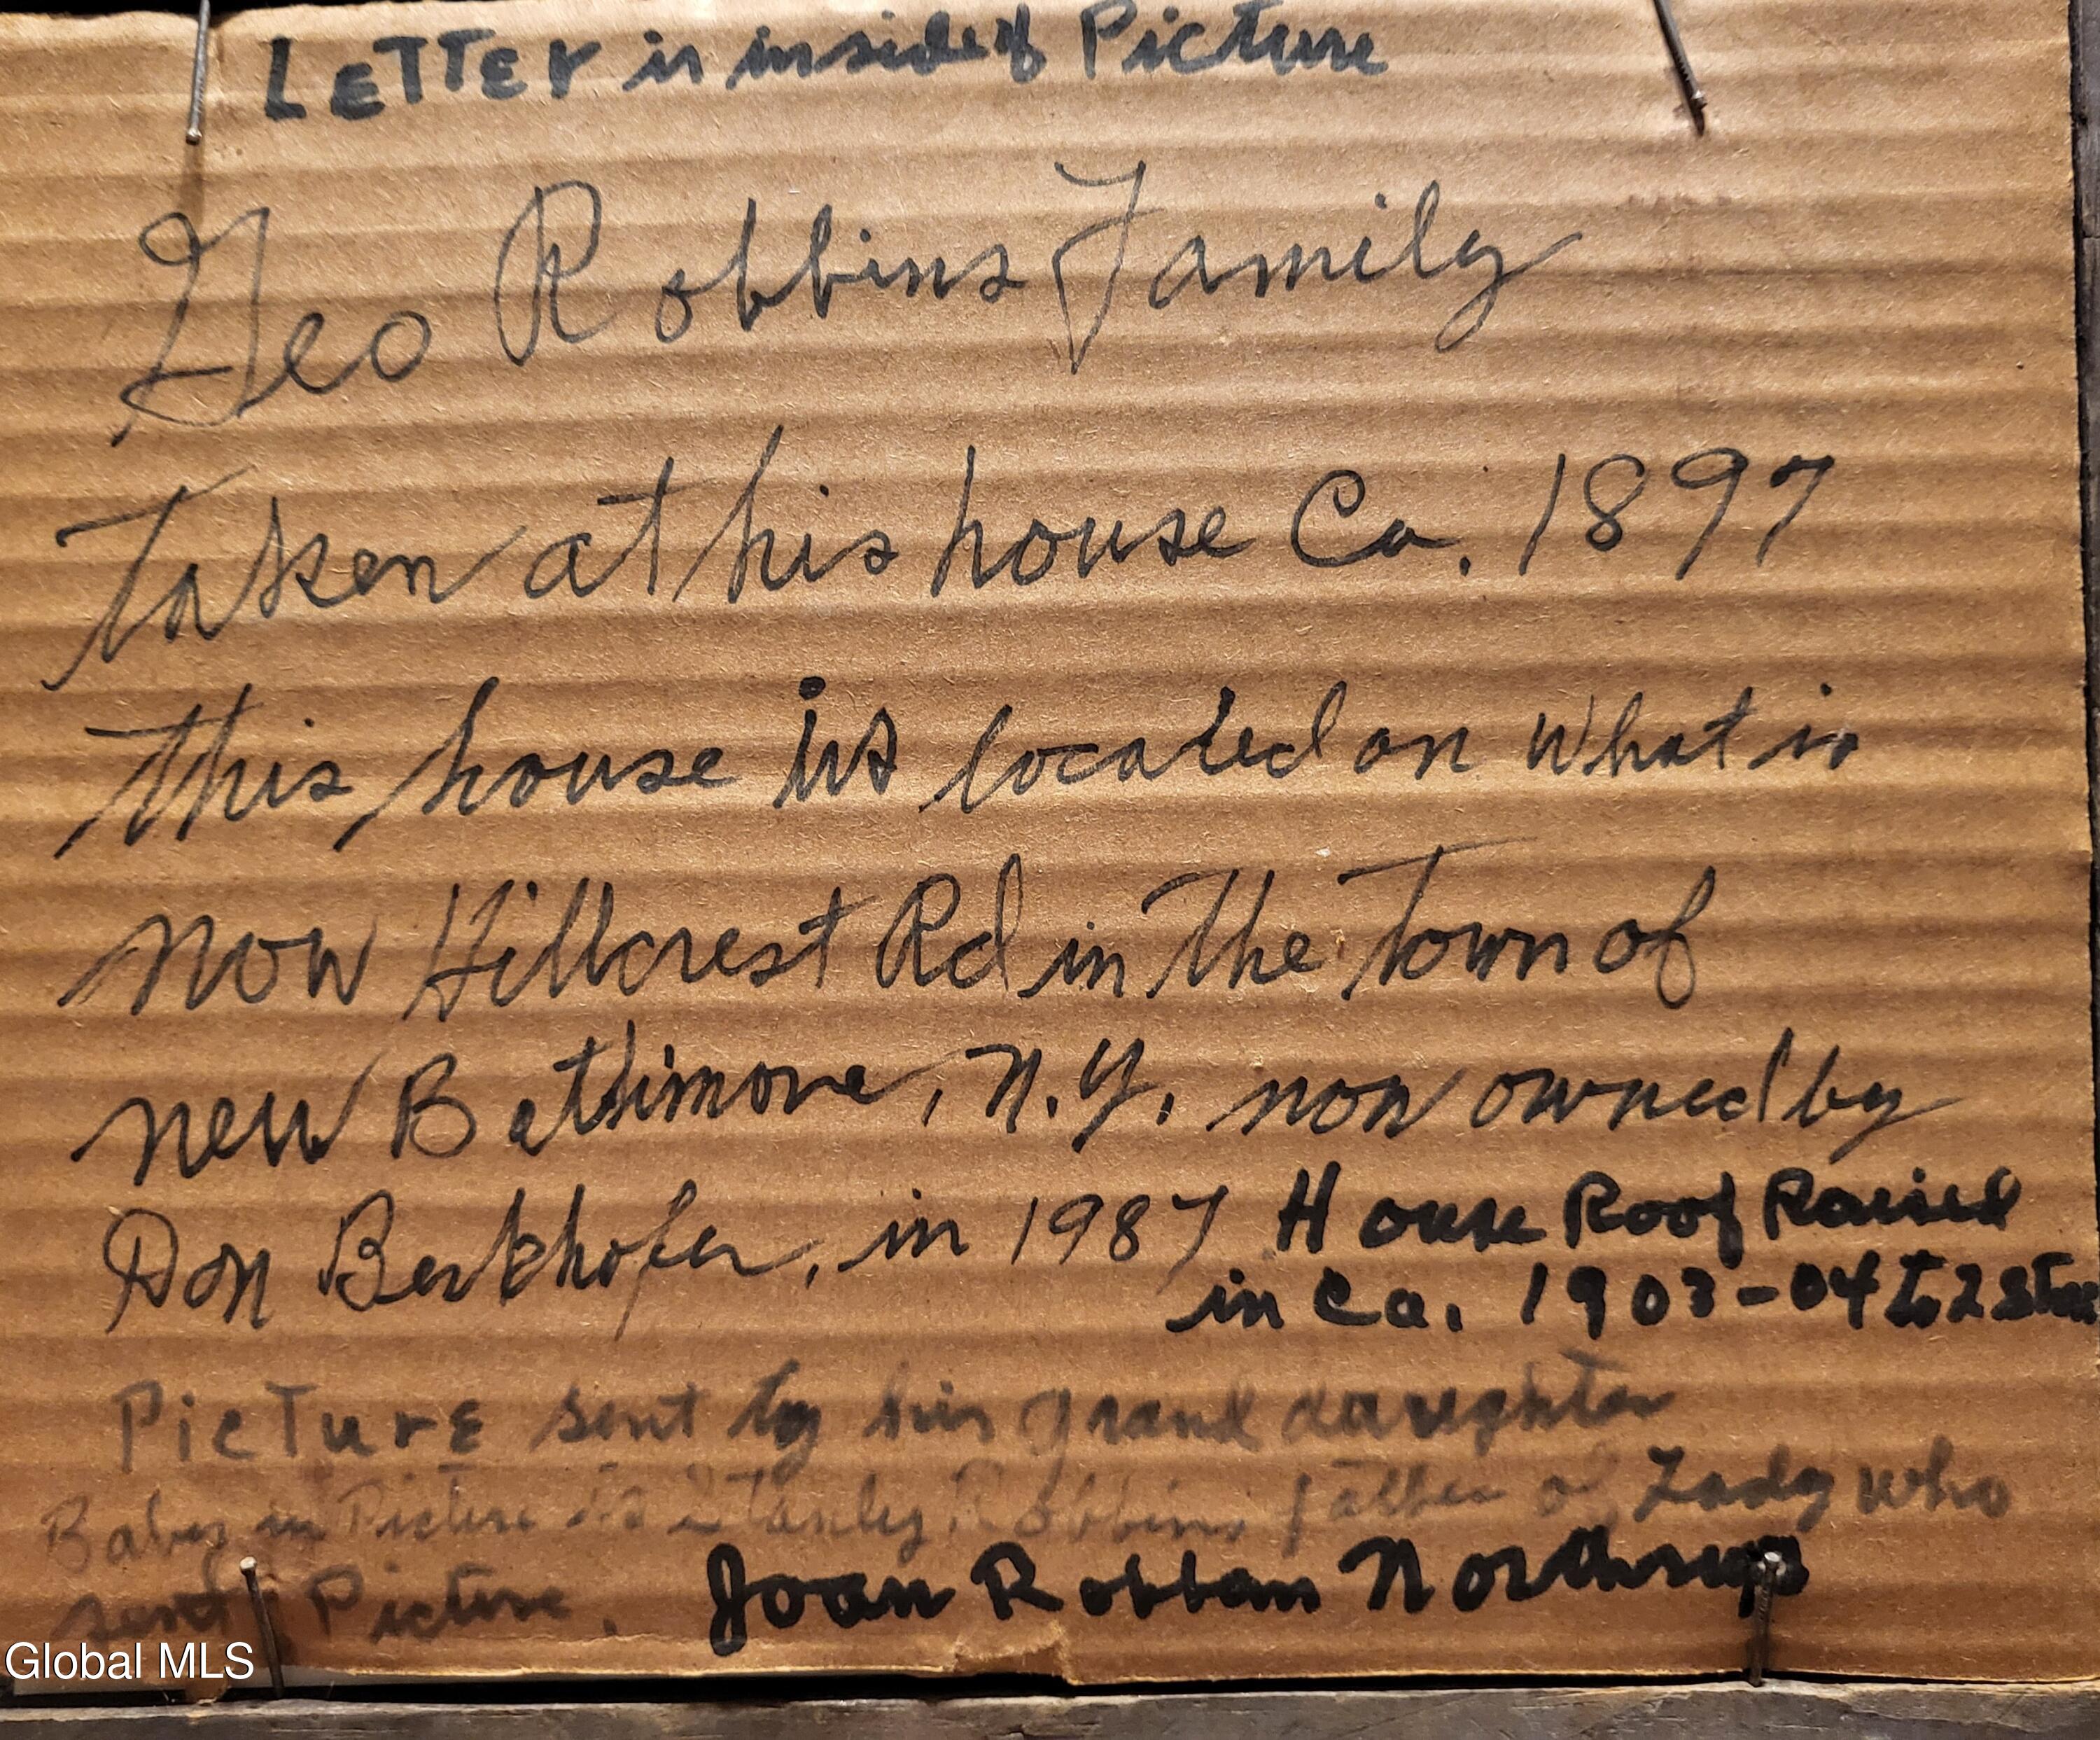 LETTER is inside of Picture
Geo Robbins Family
Taken at his house Ca. 1897
This house is located on what is
now Hillcrest Rd in the Town of
new Baltimore, N.Y. now owned by
Don Berkhofer, in 1987 House Roof Raised
in Ca. 1903-04 to 2
Picture sent by his grand daughter
Babes in Picture is Stanley Robbins father of Lady who
sent Picture. Joan Robbins Northrup
Global MLS